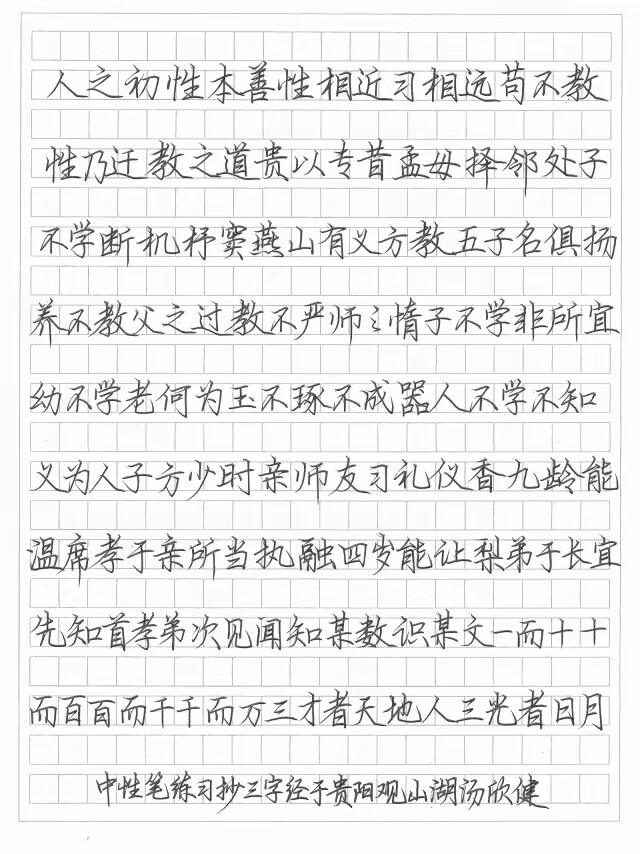 人之初性本善性相近习相远苟不教
性乃迁教之道贵以专昔孟母择邻处子
不学断机杼窦燕山有义方教五子名俱扬
养不教父之过教不严师之惰子不学非所宜
幼不学老何为玉不琢不成器人不学不知
义为人子方少时亲师友习礼仪香九龄能
温席孝于亲所当执融四岁能让梨弟于长宜
先知首孝弟次见闻知某数识某文一而十十
而百百而千千而万三才者天地人三光者日月
中性笔练习抄三字经于贵阳观山湖汤欣健